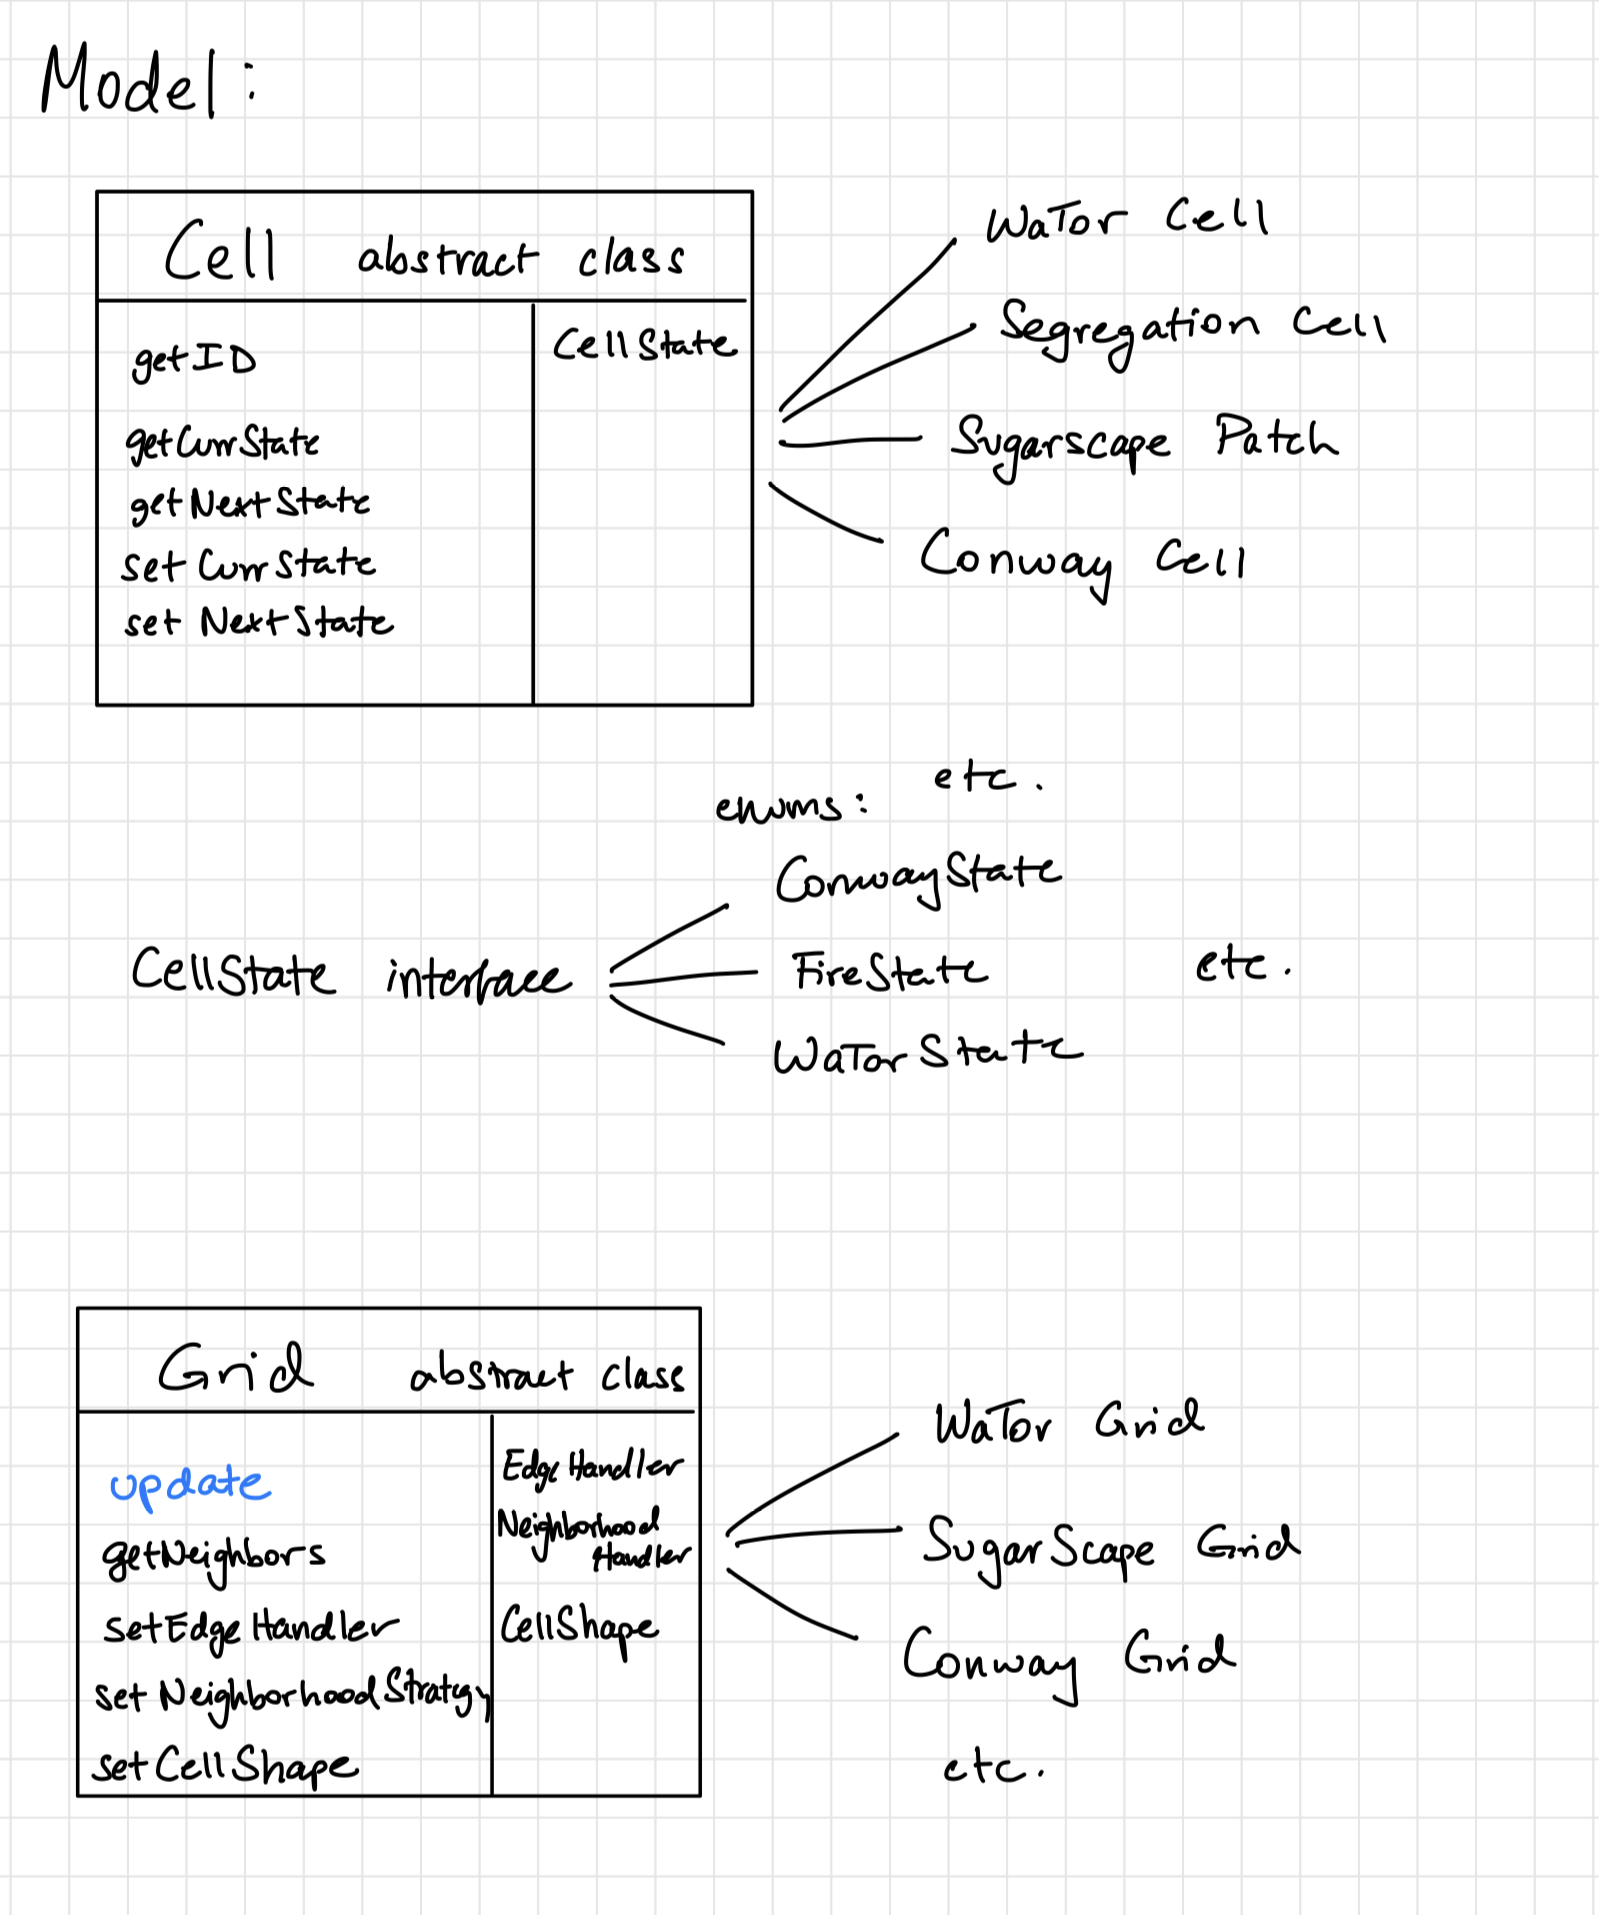 Model:
Cell abstract class
getID
getCurrState
getNextState
set CurrState
set NextState
CellState
WaTor Cell
Segregation Cell
Sugarscape Patch
Conway Cell
etc.
enums:
CellState interface
ConwayState
FireState
WaTorState
etc.
Grid abstract class
update
getNeighbors
setEdgeHandler
set NeighborhoodStrategy
setCellShape
EdgeHandler
Neighborhood
Handler
CellShape
WaTor Grid
SugarScape Grid
Conway Grid
etc.